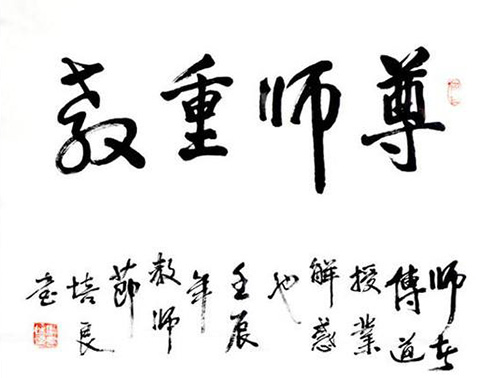 尊师重教
师者
傳道
授業
解惑
也
壬辰
年
教师
節
培良
书